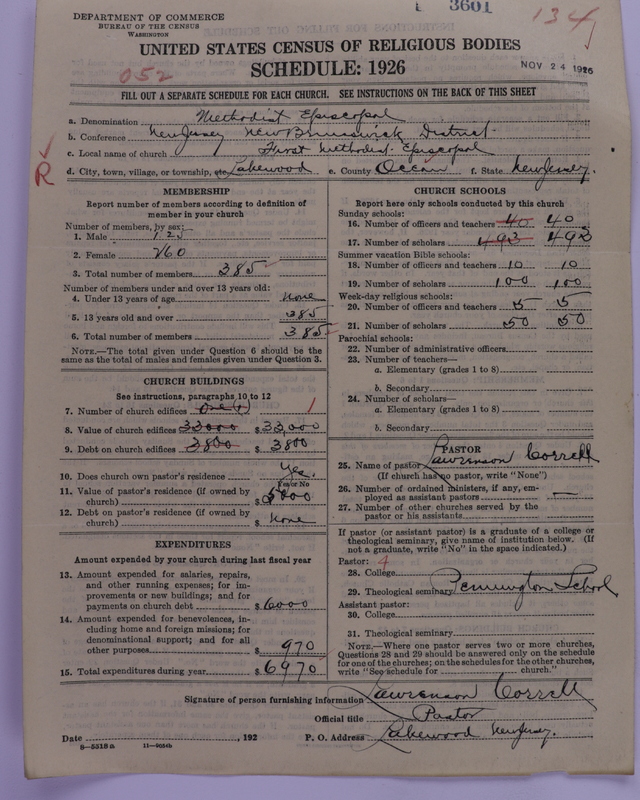 DEPARTMENT OF COMMERCE
BUREAU OF THE CENSUS
WASHINGTON
3601
134
UNITED STATES CENSUS OF RELIGIOUS BODIES
SCHEDULE: 1926
NOV 24 1926
052
FILL OUT A SEPARATE SCHEDULE FOR EACH CHURCH. SEE INSTRUCTIONS ON THE BACK OF THIS SHEET
a. Denomination Methodist Episcopal
b. Conference New Jersey New Brunswick District
c. Local name of church First Methodist Episcopal
R
d. City, town, village, or township, etc. Lakewood e. County Ocean f. State New Jersey.
MEMBERSHIP
Report number of members according to definition of
member in your church
Number of members, by sex:
1. Male 125
2. Female 260
3. Total number of members 385
Number of members under and over 13 years old:
4. Under 13 years of age none
5. 13 years old and over 385
6. Total number of members 385
NOTE.—The total given under Question 6 should be
the same as the total of males and females given under Question 3.
CHURCH BUILDINGS
See instructions, paragraphs 10 to 12
7. Number of church edifices one (1) 1
8. Value of church edifices 33000 $ 33,000
9. Debt on church edifices 3800 $ 3800
10. Does church own pastor's residence Yes.
Yes or No
11. Value of pastor's residence (if owned by
church) $ 5000
12. Debt on pastor's residence (if owned by
church) $ none
EXPENDITURES
Amount expended by your church during last fiscal year
13. Amount expended for salaries, repairs,
and other running expenses; for im-
provements or new buildings; and for
payments on church debt $ 6000
14. Amount expended for benevolences, in-
cluding home and foreign missions; for
denominational support; and for all
other purposes $ 970
15. Total expenditures during year $ 6970
CHURCH SCHOOLS
Report here only schools conducted by this church
Sunday schools:
16. Number of officers and teachers 40 40
17. Number of scholars 493 493
Summer vacation Bible schools:
18. Number of officers and teachers 10 10
19. Number of scholars 100 100
Week-day religious schools:
20. Number of officers and teachers 5 5
21. Number of scholars 50 50
Parochial schools:
22. Number of administrative officers
23. Number of teachers—
a. Elementary (grades 1 to 8)
b. Secondary
24. Number of scholars—
a. Elementary (grades 1 to 8)
b. Secondary
PASTOR
25. Name of pastor Lawrenson Correll
(If church has no pastor, write "None")
26. Number of ordained ministers, if any, em-
ployed as assistant pastors —
27. Number of other churches served by the
pastor or his assistants
If pastor (or assistant pastor) is a graduate of a college or
theological seminary, give name of institution below. (If
not a graduate, write "No" in the space indicated.)
Pastor: 4
28. College
29. Theological seminary Pennington School
Assistant pastor:
30. College
31. Theological seminary
NOTE.—Where one pastor serves two or more churches,
Questions 28 and 29 should be answered only on the schedule
for one of the churches; on the schedules for the other churches,
write "See schedule for church."
Signature of person furnishing information Lawrenson Correll
Official title Pastor
Date , 192 P. O. Address Lakewood New Jersey.
8—5518a